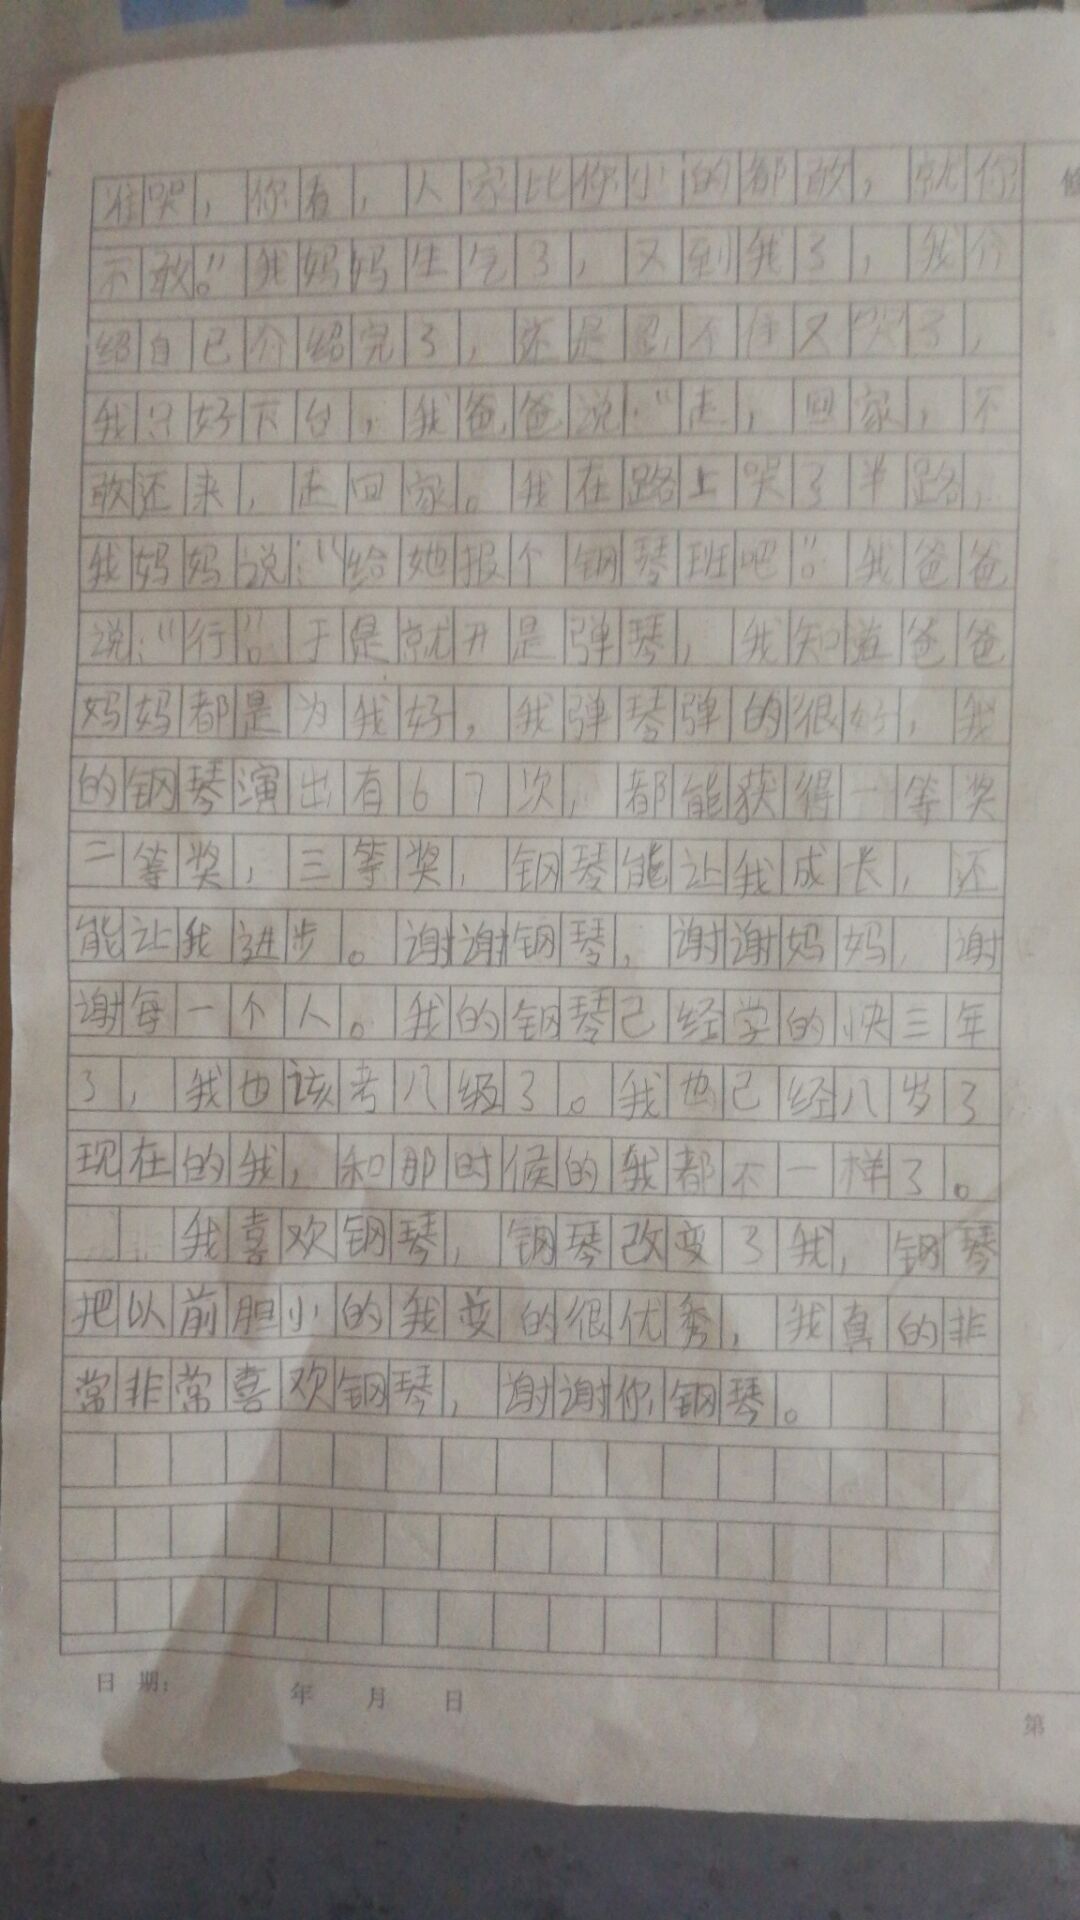 准哭，你看，人家比你小的都敢，就你
不敢。"我妈妈生气了，又到我了，我介
绍自己介绍完了，还是忍不住又哭了，
我只好下台，我爸爸说："走，回家，不
敢还来，走回家。我在路上哭了半路，
我妈妈说："给她报个钢琴班吧。"我爸爸
说："行"。于是就开是弹琴，我知道爸爸
妈妈都是为我好，我弹琴弹的很好，我
的钢琴演出有67次，都能获得一等奖
二等奖，三等奖，钢琴能让我成长，还
能让我进步。谢谢钢琴，谢谢妈妈，谢
谢每一个人。我的钢琴己经学的快三年
了，我也该考八级了。我也己经八岁了
现在的我，和那时候的我都不一样了。
我喜欢钢琴，钢琴改变了我，钢琴
把以前胆小的我变的很优秀，我真的非
常非常喜欢钢琴，谢谢你钢琴。
日期： 年 月 日
第